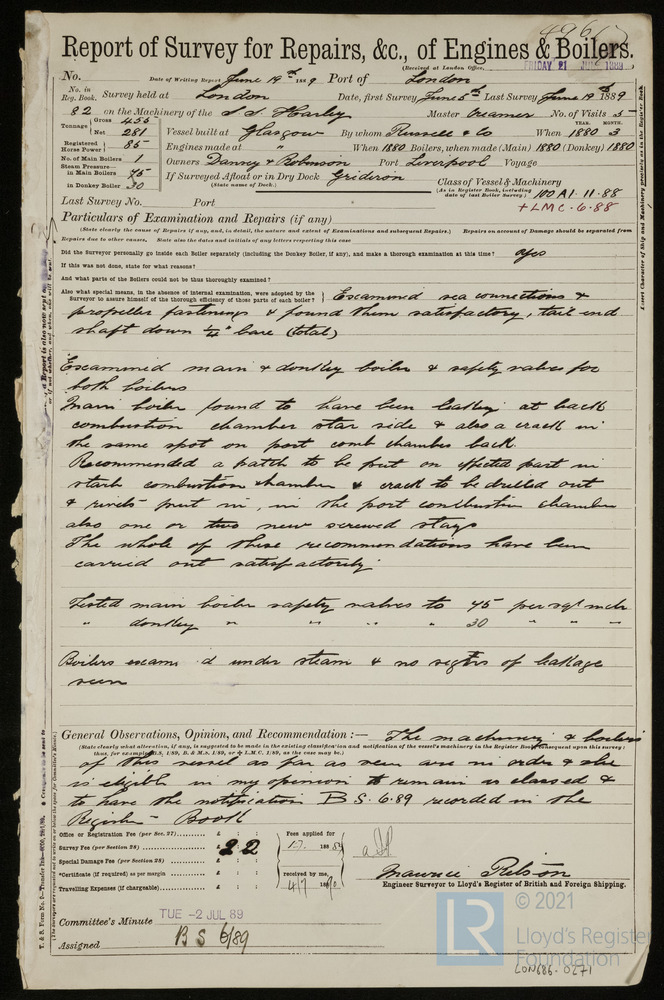 Report of Survey for Repairs, &c., of Engines & Boilers.
(Received at London Office, FRIDAY 21 JUN 1889
No. Date of Writing Report June 19th 1889 Port of London
No. in Reg. Book. Survey held at London Date, first Survey June 5th Last Survey June 19th 1889
82 on the Machinery of the S.S. Harley Master Creamer No. of Visits 5
Tonnage Gross 455
Net 281 Vessel built at Glasgow By whom Russell & Co When 1880 YEAR. 3 MONTH.
Registered Horse Power 85 Engines made at " When 1880 Boilers, when made (Main) 1880 (Donkey) 1880
No. of Main Boilers 1 Owners & Robinson Port Liverpool Voyage
Steam Pressure in Main Boilers 75 If Surveyed Afloat or in Dry Dock Gridiron
(State name of Dock.)
in Donkey Boiler 30
Class of Vessel & Machinery
(As in Register Book, including date of last Boiler Survey) 100A1. 11.88
+LMC.6.88
Last Survey No. Port
Particulars of Examination and Repairs (if any)
(State clearly the cause of Repairs if any, and, in detail, the nature and extent of Examinations and subsequent Repairs.) Repairs on account of Damage should be separated from
Repairs due to other causes, State also the dates and initials of any letters respecting this case
Did the Surveyor personally go inside each Boiler separately (including the Donkey Boiler, if any), and make a thorough examination at this time? Yes
If this was not done, state for what reasons?
And what parts of the Boilers could not be thus thoroughly examined?
Also what special means, in the absence of internal examination, were adopted by the
Surveyor to assure himself of the thorough efficiency of those parts of each boiler? Examined sea connections &
propeller fastenings & found them satisfactory, tail end
shaft down 1/4" bare (total)
Examined main & donkey boiler & safety valves for
both boilers
Main boiler found to have been leaking at back
combustion chamber star side & also a crack in
the same spot on port comb chamber back.
Recommended a patch to be put on effected part in
starb combustion chamber & crack to be drilled out
& rivets put in, in the port combustion chamber
also one or two new screwed stays
The whole of these recommendations have been
carried out satisfactorily
Tested main boiler safety valves to 75 per sq inch
" donkey " " " " 30 " " "
Boilers examd under steam & no signs of leakage
seen
General Observations, Opinion, and Recommendation:— The machinery & boilers
(State clearly what alteration, if any, is suggested to be made in the existing classification and notification of the vessel's machinery in the Register Book consequent upon this survey;
thus, for example, B.S. 1/89, B. & M.s. 1/89, or + L.M.C. 1/89, as the case may be.)
of this vessel as far as seen are in order & she
is eligible in my opinion to remain as classed &
to have the notification B S. 6.89 recorded in the
Register - Book
Office or Registration Fee (per Sec. 27) £ : : Fees applied for
Survey Fee (per Section 28) £ 2 2 188
Special Damage Fee (per Section 28) £ : :
*Certificate (if required) as per margin £ : : received by me,
Travelling Expenses (if chargeable) £ : : 4/7 18
Maurice
Engineer Surveyor to Lloyd's Register of British and Foreign Shipping.
Committee's Minute TUE -2 JUL 89
Assigned B S 6/89
© 2021
LR
Lloyd's Register
Foundation
LON686-0271